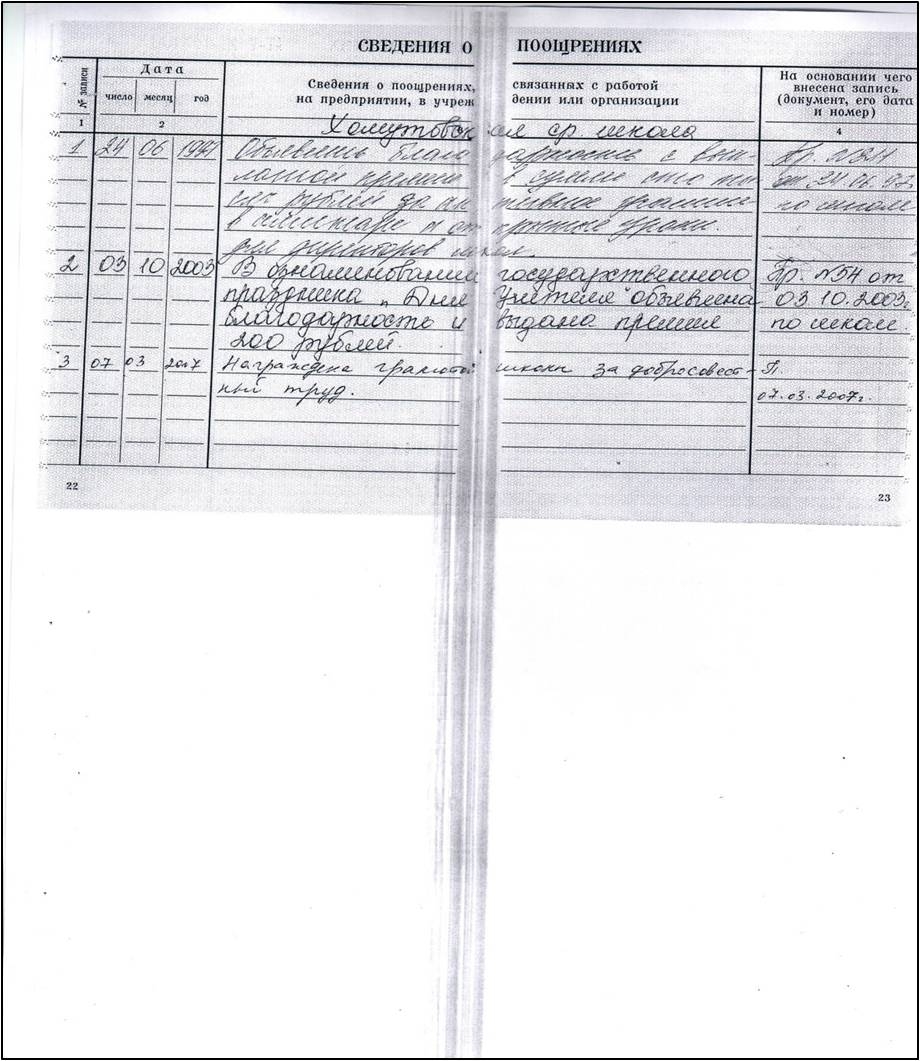 СВЕДЕНИЯ О ПООЩРЕНИЯХ
№ записи
Дата
число месяц год
Сведения о поощрениях, связанных с работой
на предприятии, в учреж дении или организации
На основании чего
внесена запись
(документ, его дата
и номер)
1 2 4
Хомутовская ср школа
1 24 06 1997 Объявить благодарность с вып-
латой премии в сумме сто ты- от 24.06.97г
сяч рублей за активное участие по школе
в семинаре и открытые уроки
для директоров школ.
2 03 10 2003 В ознаменовании государственного Пр. №54 от
праздника „ Дня Учителя объявлена 03.10.2003г
благодарность и выдана премия по школе.
200 рублей.
3 07 03 2007 Награждена грамотой школы за добросовест- П.
ный труд. 07.03.2007г.
22 23